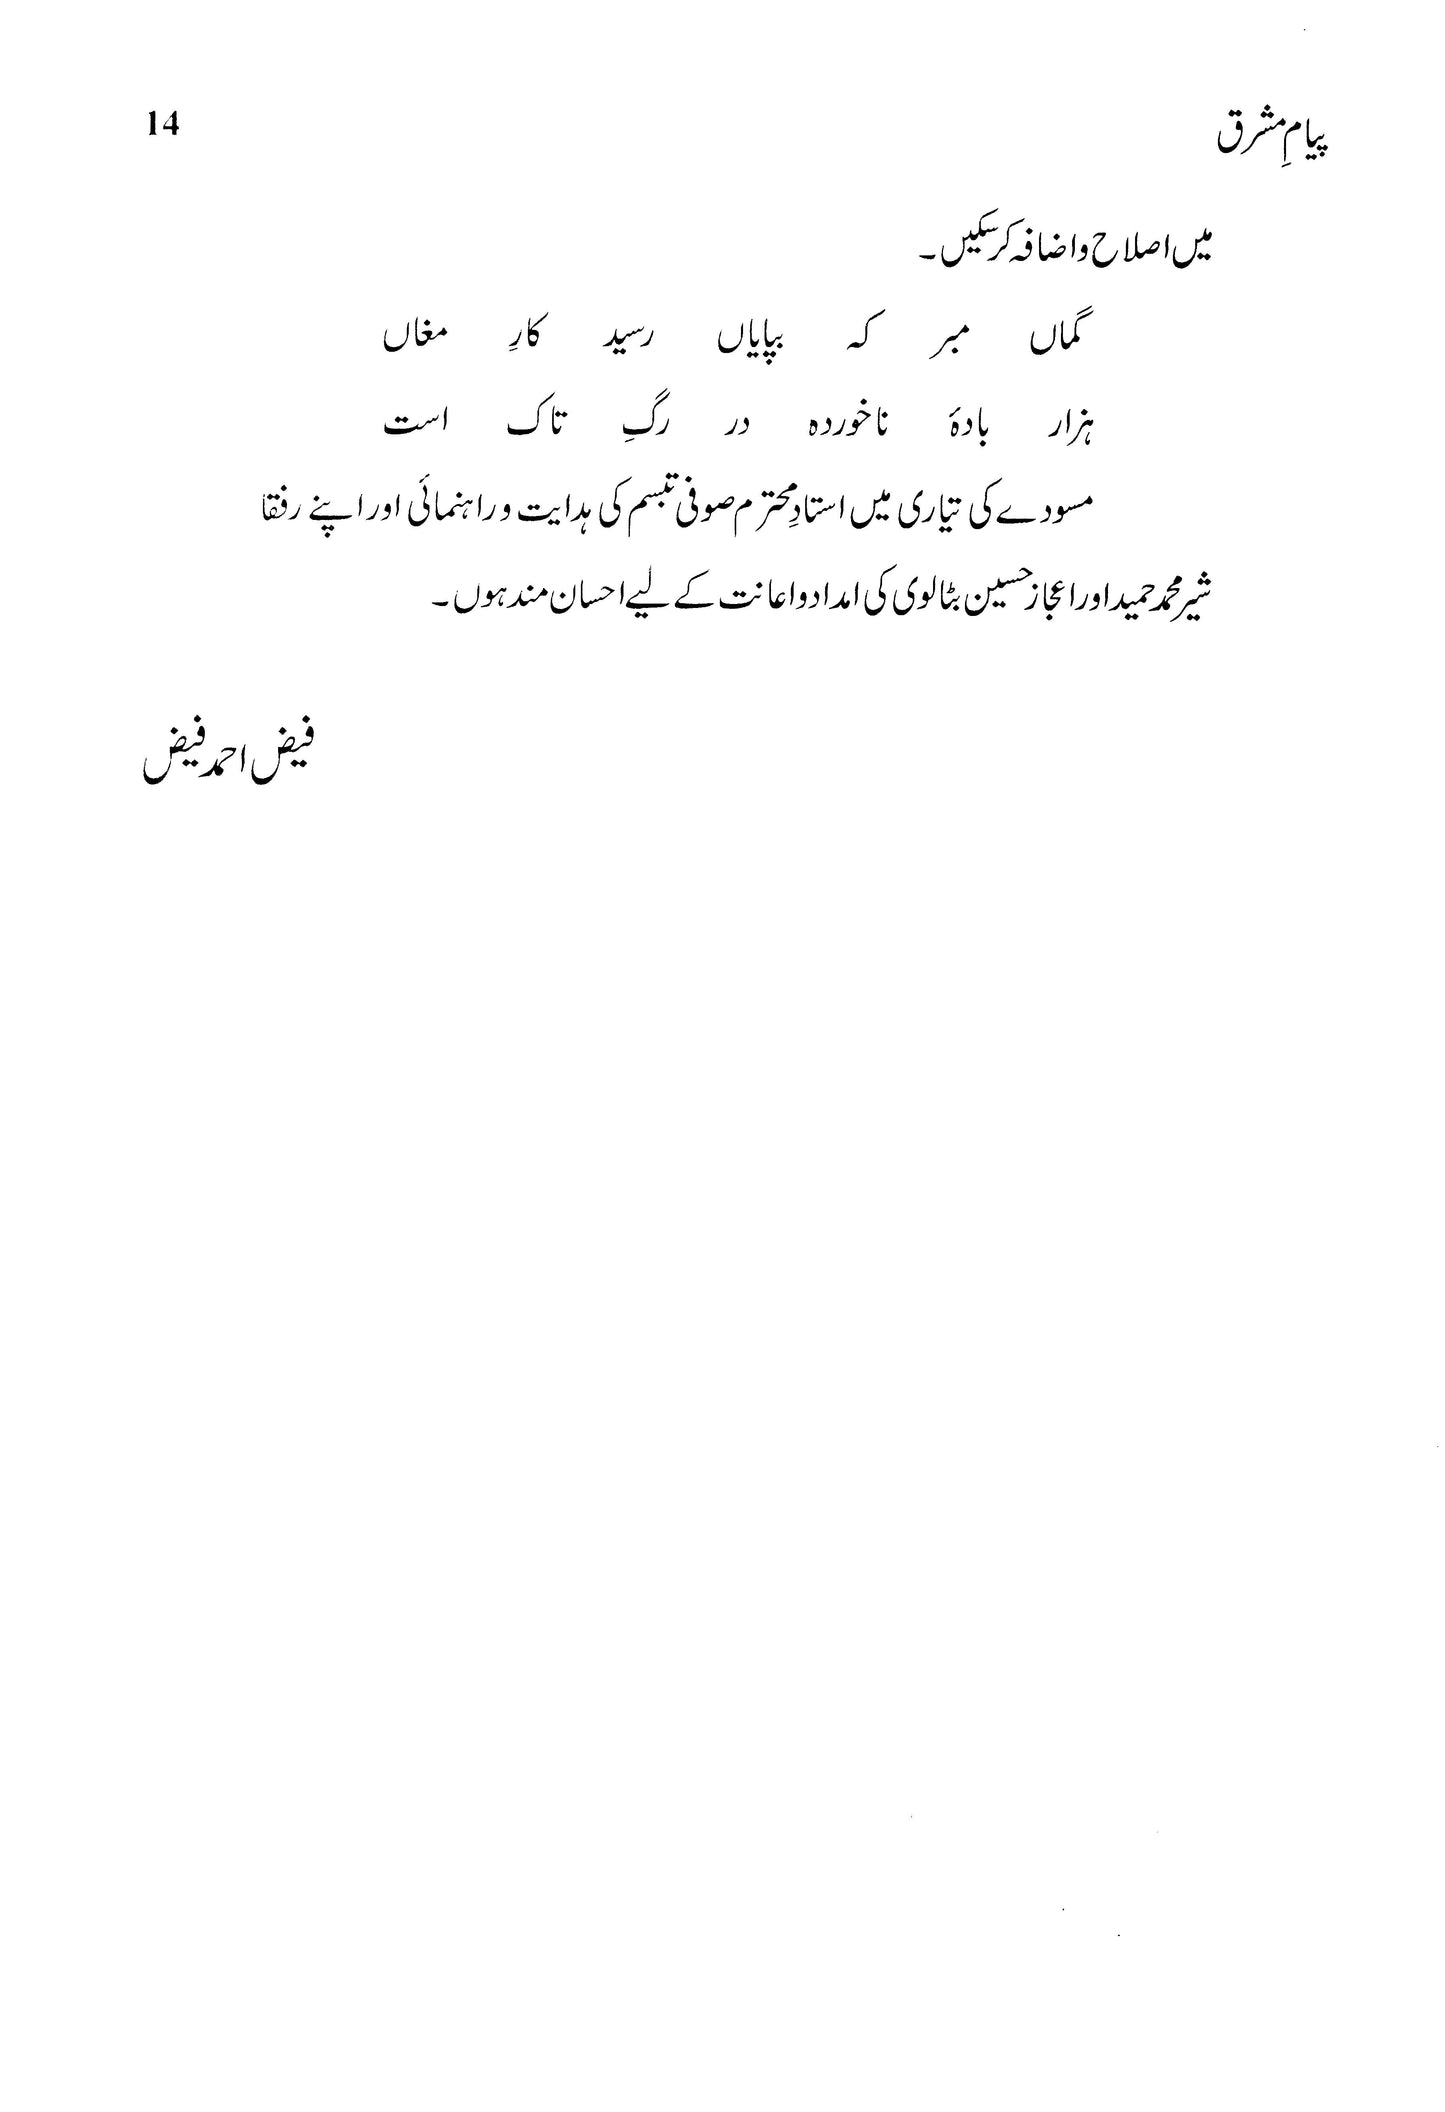 پیامِ مشرق 14
میں اصلاح و اضافہ کر سکیں۔
گماں مبر کہ بپایاں رسید کارِ مغاں
ہزار بادۂ ناخوردہ در رگِ تاک است
مسودے کی تیاری میں استادِ محترم صوفی تبسم کی ہدایت و راہنمائی اور اپنے رفقا
شیر محمد حمید اور اعجاز حسین بٹالوی کی امداد و اعانت کے لیے احسان مند ہوں۔
فیض احمد فیض